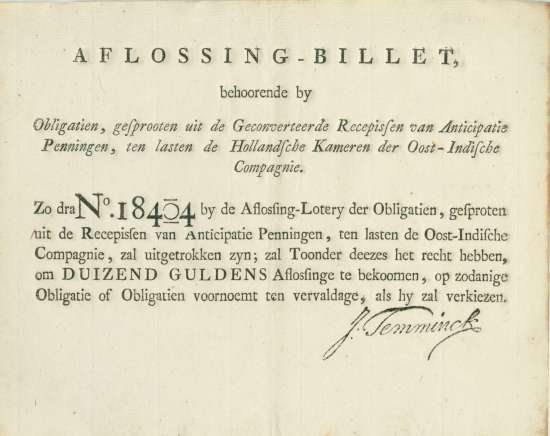 AFLOSSING-BILLET,
behoorende by
Obligatien, gesprooten uit de Geconverteerde Recepissen van Anticipatie
Penningen, ten lasten de Hollandsche Kameren der Oost-Indische
Compagnie.
Zo dra No. 18404 by de Aflossing-Lotery der Obligatien, gesproten
uit de Recepissen van Anticipatie Penningen, ten lasten de Oost-Indische
Compagnie, zal uitgetrokken zyn; zal Toonder deezes het recht hebben,
om DUIZEND GULDENS Aflossinge te bekoomen, op zodanige
Obligatie of Obligatien voornoemt ten vervaldage, als hy zal verkiezen.
J. Temminck